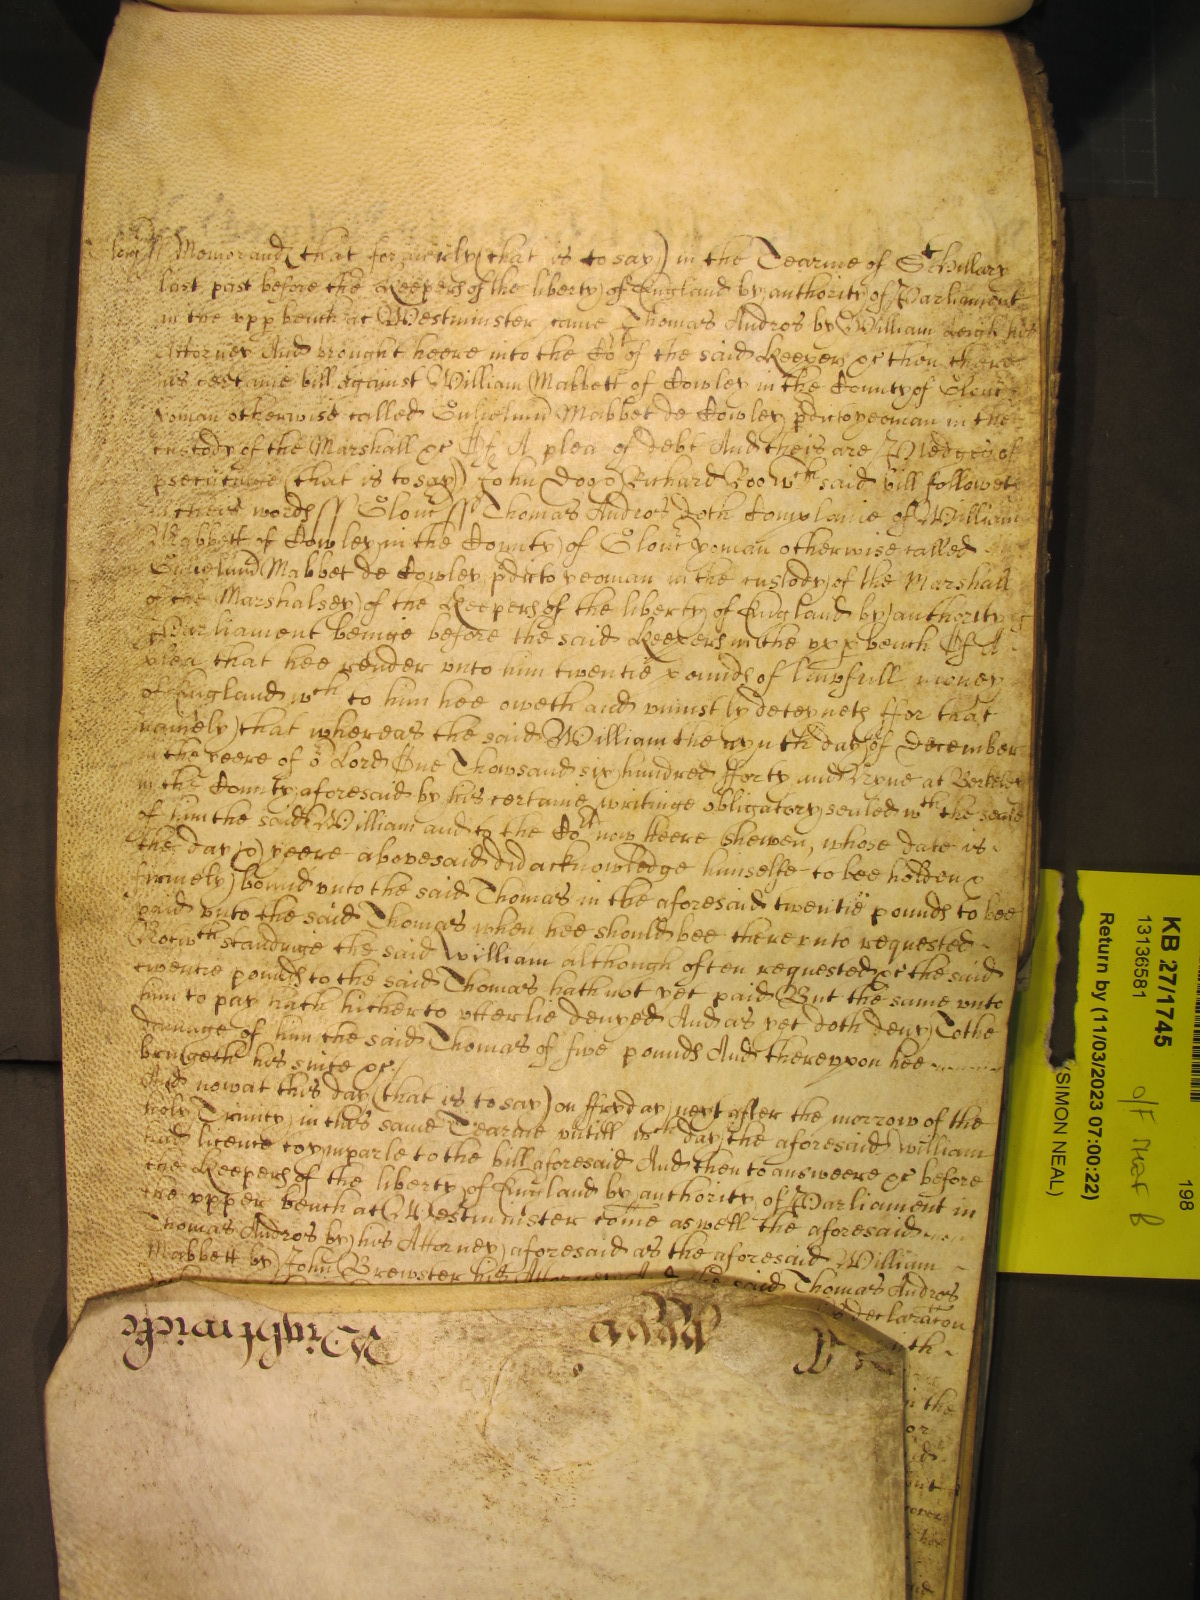 Memorand that formerly (that is to say) in the Tearme of St Hillary
last past before the Keepers of the liberty of England by authority of Parliament
in the upp bench at Westminster came Thomas Andros by William Leigh his
Attorney And brought heere into the Cort of the said Keepers &c then there
his certaine bill against William Mabbett of Cowley in the County of Glouc
yoman otherwise called Gulielmu Mabbet de Cowley pdicto yeoman in the
custody of the Marshall &c Of A plea of debt And theis are Pledges of
psecuting (that is to say) John Doo & Richard Roo wch said bill followeth
in theis words ss Glouc ss Thomas Andros doth Complaine of William
Mabbett of Cowley in the County of Glouc yoman otherwise called
Gulielmu Mabbet de Cowley pdicto yeoman in the custody of the Marshall
of the Marshalsey of the Keepers of the liberty of England by authority of
Parliament beinge before the said Keepers in the upp bench Of A
plea that hee render unto him twentie pounds of lawfull money
of England wch to him hee oweth and uniustly deteyneth ffor that
namely that whereas the said William the day of December
in the yeere of or Lord One Thowsand six hundred fforty and Nyne at Berkeley
in the County aforesaid by his certaine writinge obligatory sealed wth the seale
of him the said William and to the Cort now heere shewen, whose date is
the day & yeere abovesaid did acknowledge himselfe to bee holden &
firmely bound unto the said Thomas in the aforesaid twentie pounds to bee
paid unto the said Thomas when hee should bee thereunto requested
Notwthstandinge the said William although often requested &c the said
twentie pounds to the said Thomas hath not yet paid But the same unto
him to pay hath hitherto utterlie denyed And as yet doth deny To the
damage of him the said Thomas of five pounds And thereupon hee
bringeth his suite &c
And now at this day (that is to say) on ffryday next after the morrow of the
holy Trinity in this same Tearme untill wch day the aforesaid William
had licence to imparle to the bill aforesaid And then to answeere &c before
the Keepers of the liberty of England by authority of Parliament in
the upper bench at Westminster come aswell the aforesaid
Thomas Andros by his Attorney aforesaid as the aforesaid William
Mabbett by John Brewster his Attorney And the said Thomas Andros
declaracon
Wightwicke
KB 27/1745
13136581
Return by (11/03/2023 07:00:22)
(SIMON NEAL)
198